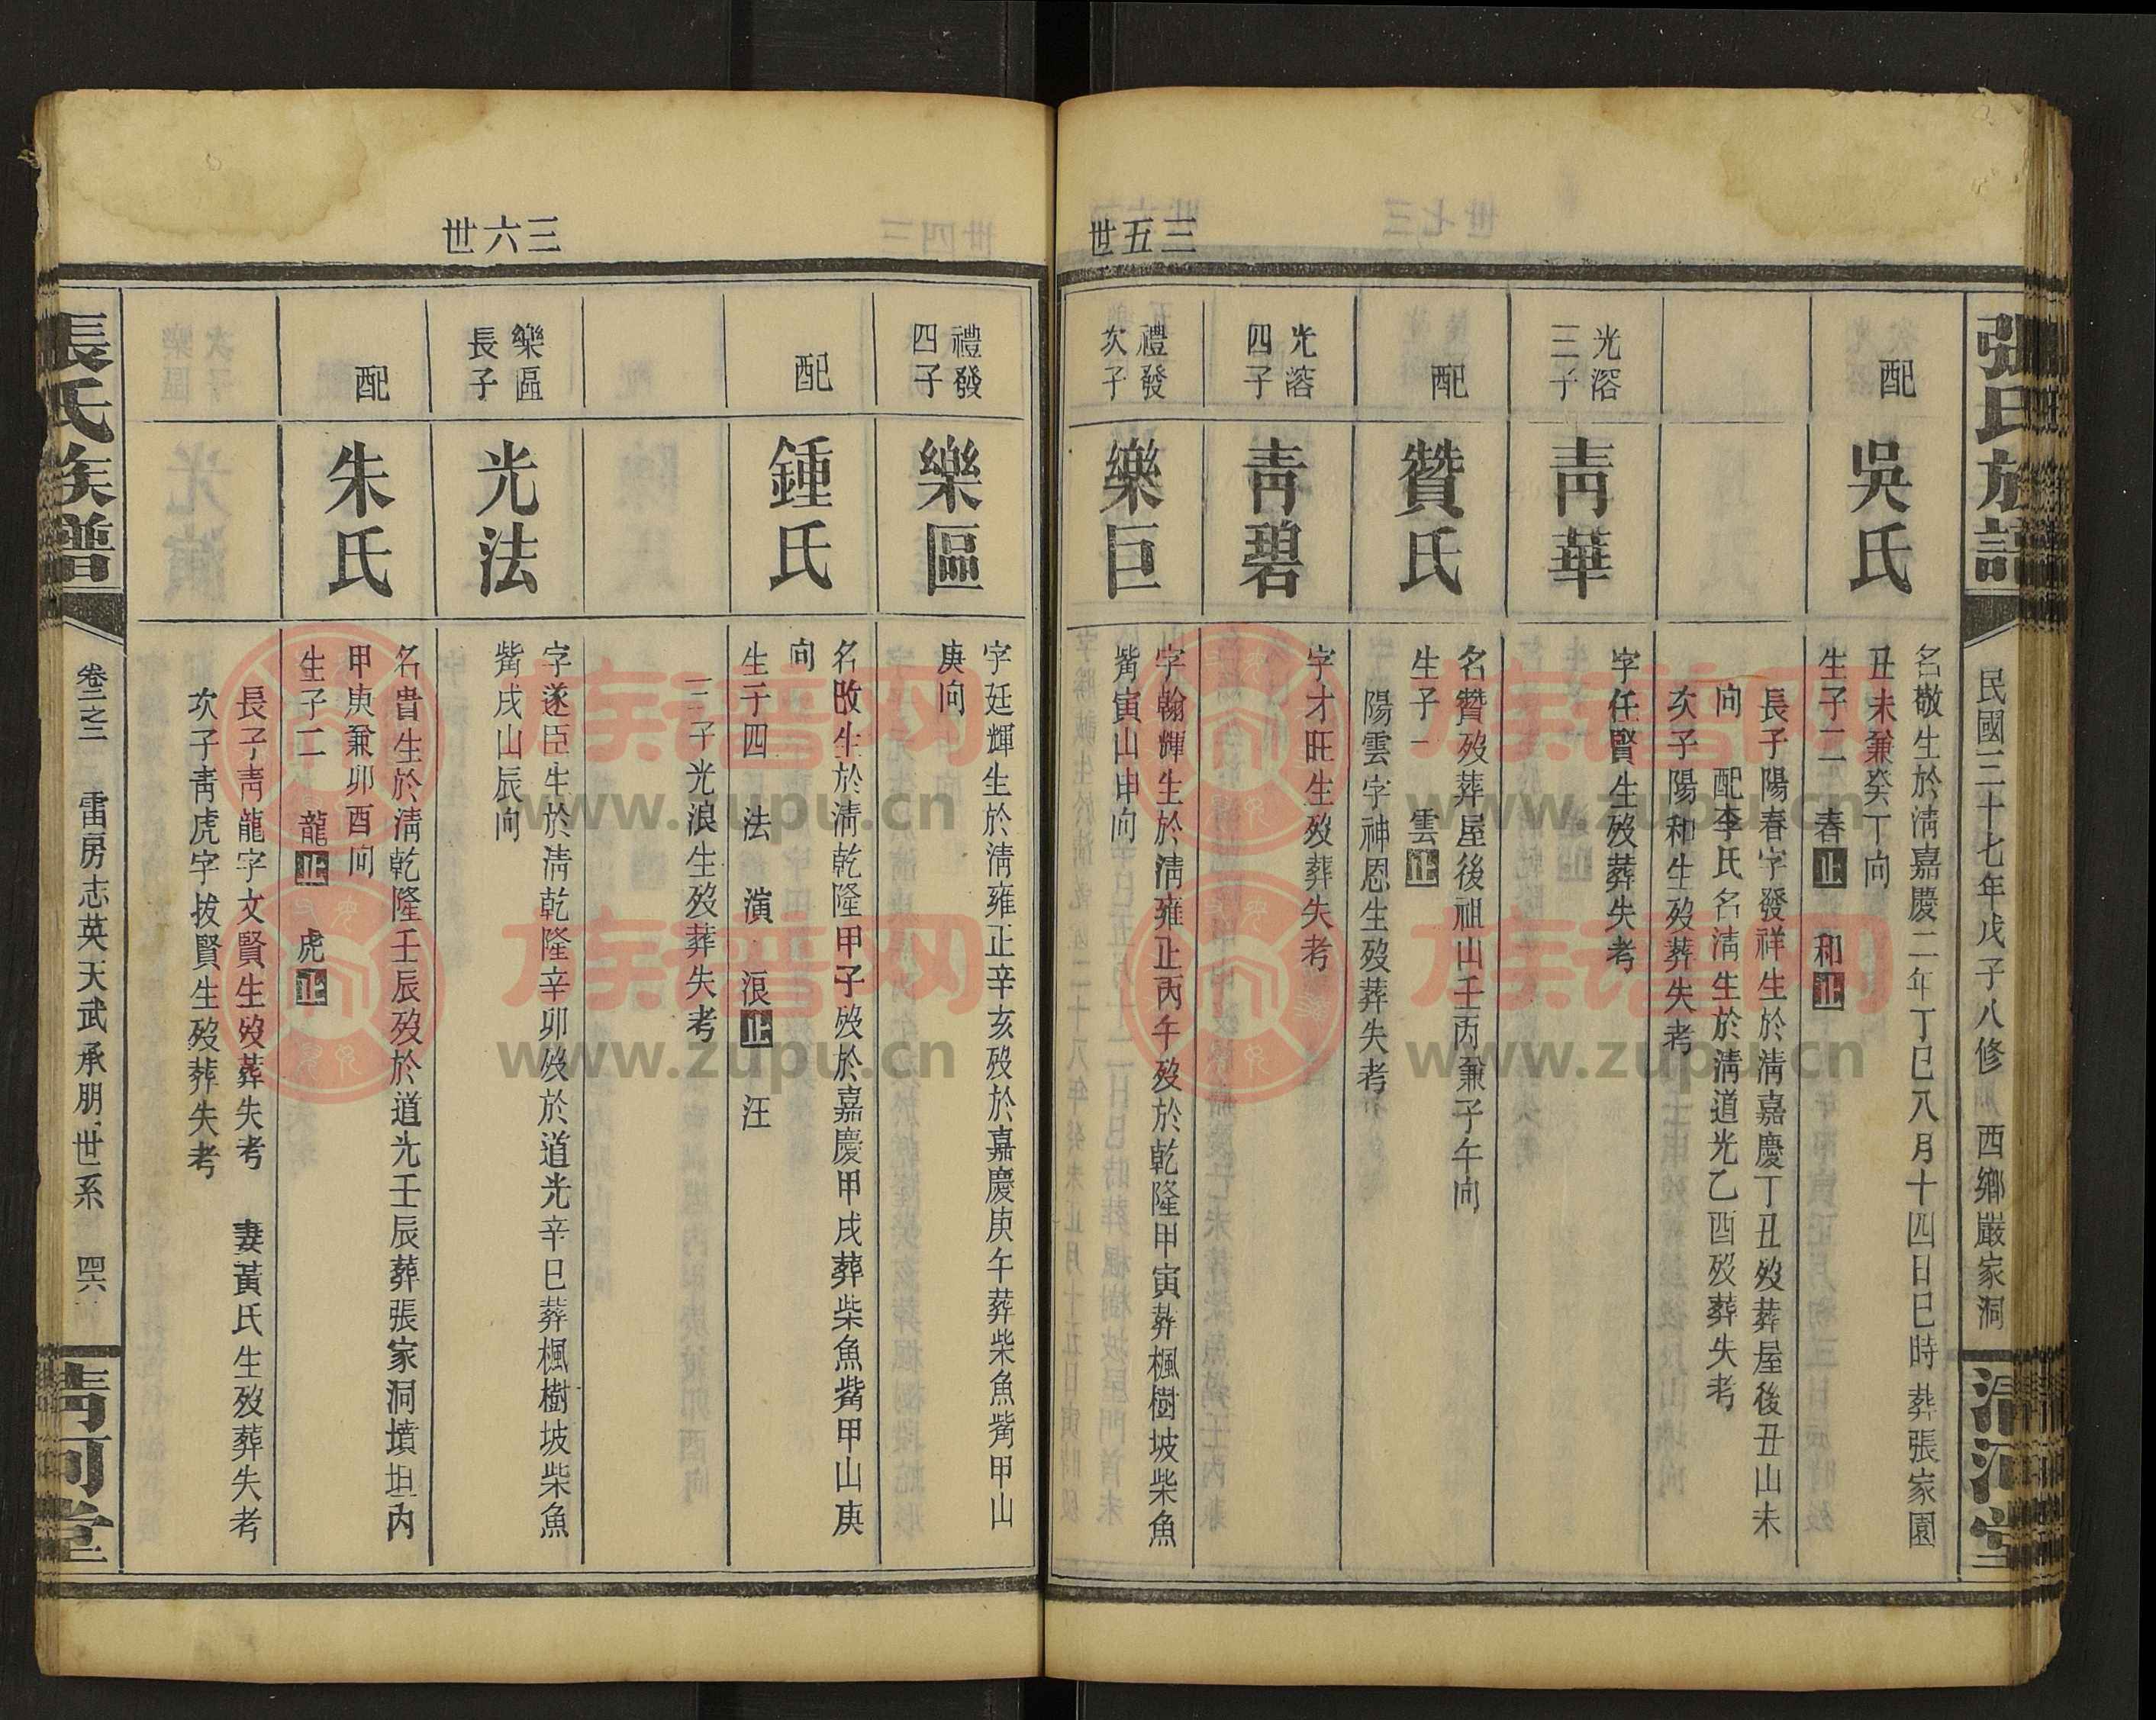 張氏族譜
民國三十七年戊子八修
西鄉嚴家洞
清河堂
配
吳氏
名敬生於清嘉慶二年丁巳八月十四日巳時葬張家園
丑未兼癸丁向
生子二 春止 和止
長子陽春字發祥生於清嘉慶丁丑歿葬屋後丑山未
向 配李氏名清生於清道光乙酉歿葬失考
次子陽和生歿葬失考
光溶
三子
青華
字任賢生歿葬失考
配
贊氏
名贊歿葬屋後祖山壬丙兼子午向
生子一 雲止
陽雲字神恩生歿葬失考
光溶
四子
青碧
字才旺生歿葬失考
三五世
禮發
次子
樂巨
字翰輝生於清雍正丙午歿於乾隆甲寅葬楓樹坡柴魚
觜寅山申向
禮發
四子
樂區
字廷輝生於清雍正辛亥歿於嘉慶庚午葬柴魚觜甲山
庚向
配
鍾氏
名改生於清乾隆甲子歿於嘉慶甲戌葬柴魚觜甲山庚
向
生子四 法 演 浪止 汪
三子光浪生歿葬失考
三六世
樂區
長子
光法
字遂臣生於清乾隆辛卯歿於道光辛巳葬楓樹坡柴魚
觜戌山辰向
配
朱氏
名貴生於清乾隆壬辰歿於道光壬辰葬張家洞墳坦內
甲庚兼卯酉向
生子二 龍止 虎止
長子青龍字文賢生歿葬失考 妻黃氏生歿葬失考
次子青虎字拔賢生歿葬失考
張氏族譜
卷二之二 雷房志英天武承朋世系 四六
清河堂
族谱网
www.zupu.cn
族谱网
www.zupu.cn
族谱网
www.zupu.cn
族谱网
www.zupu.cn